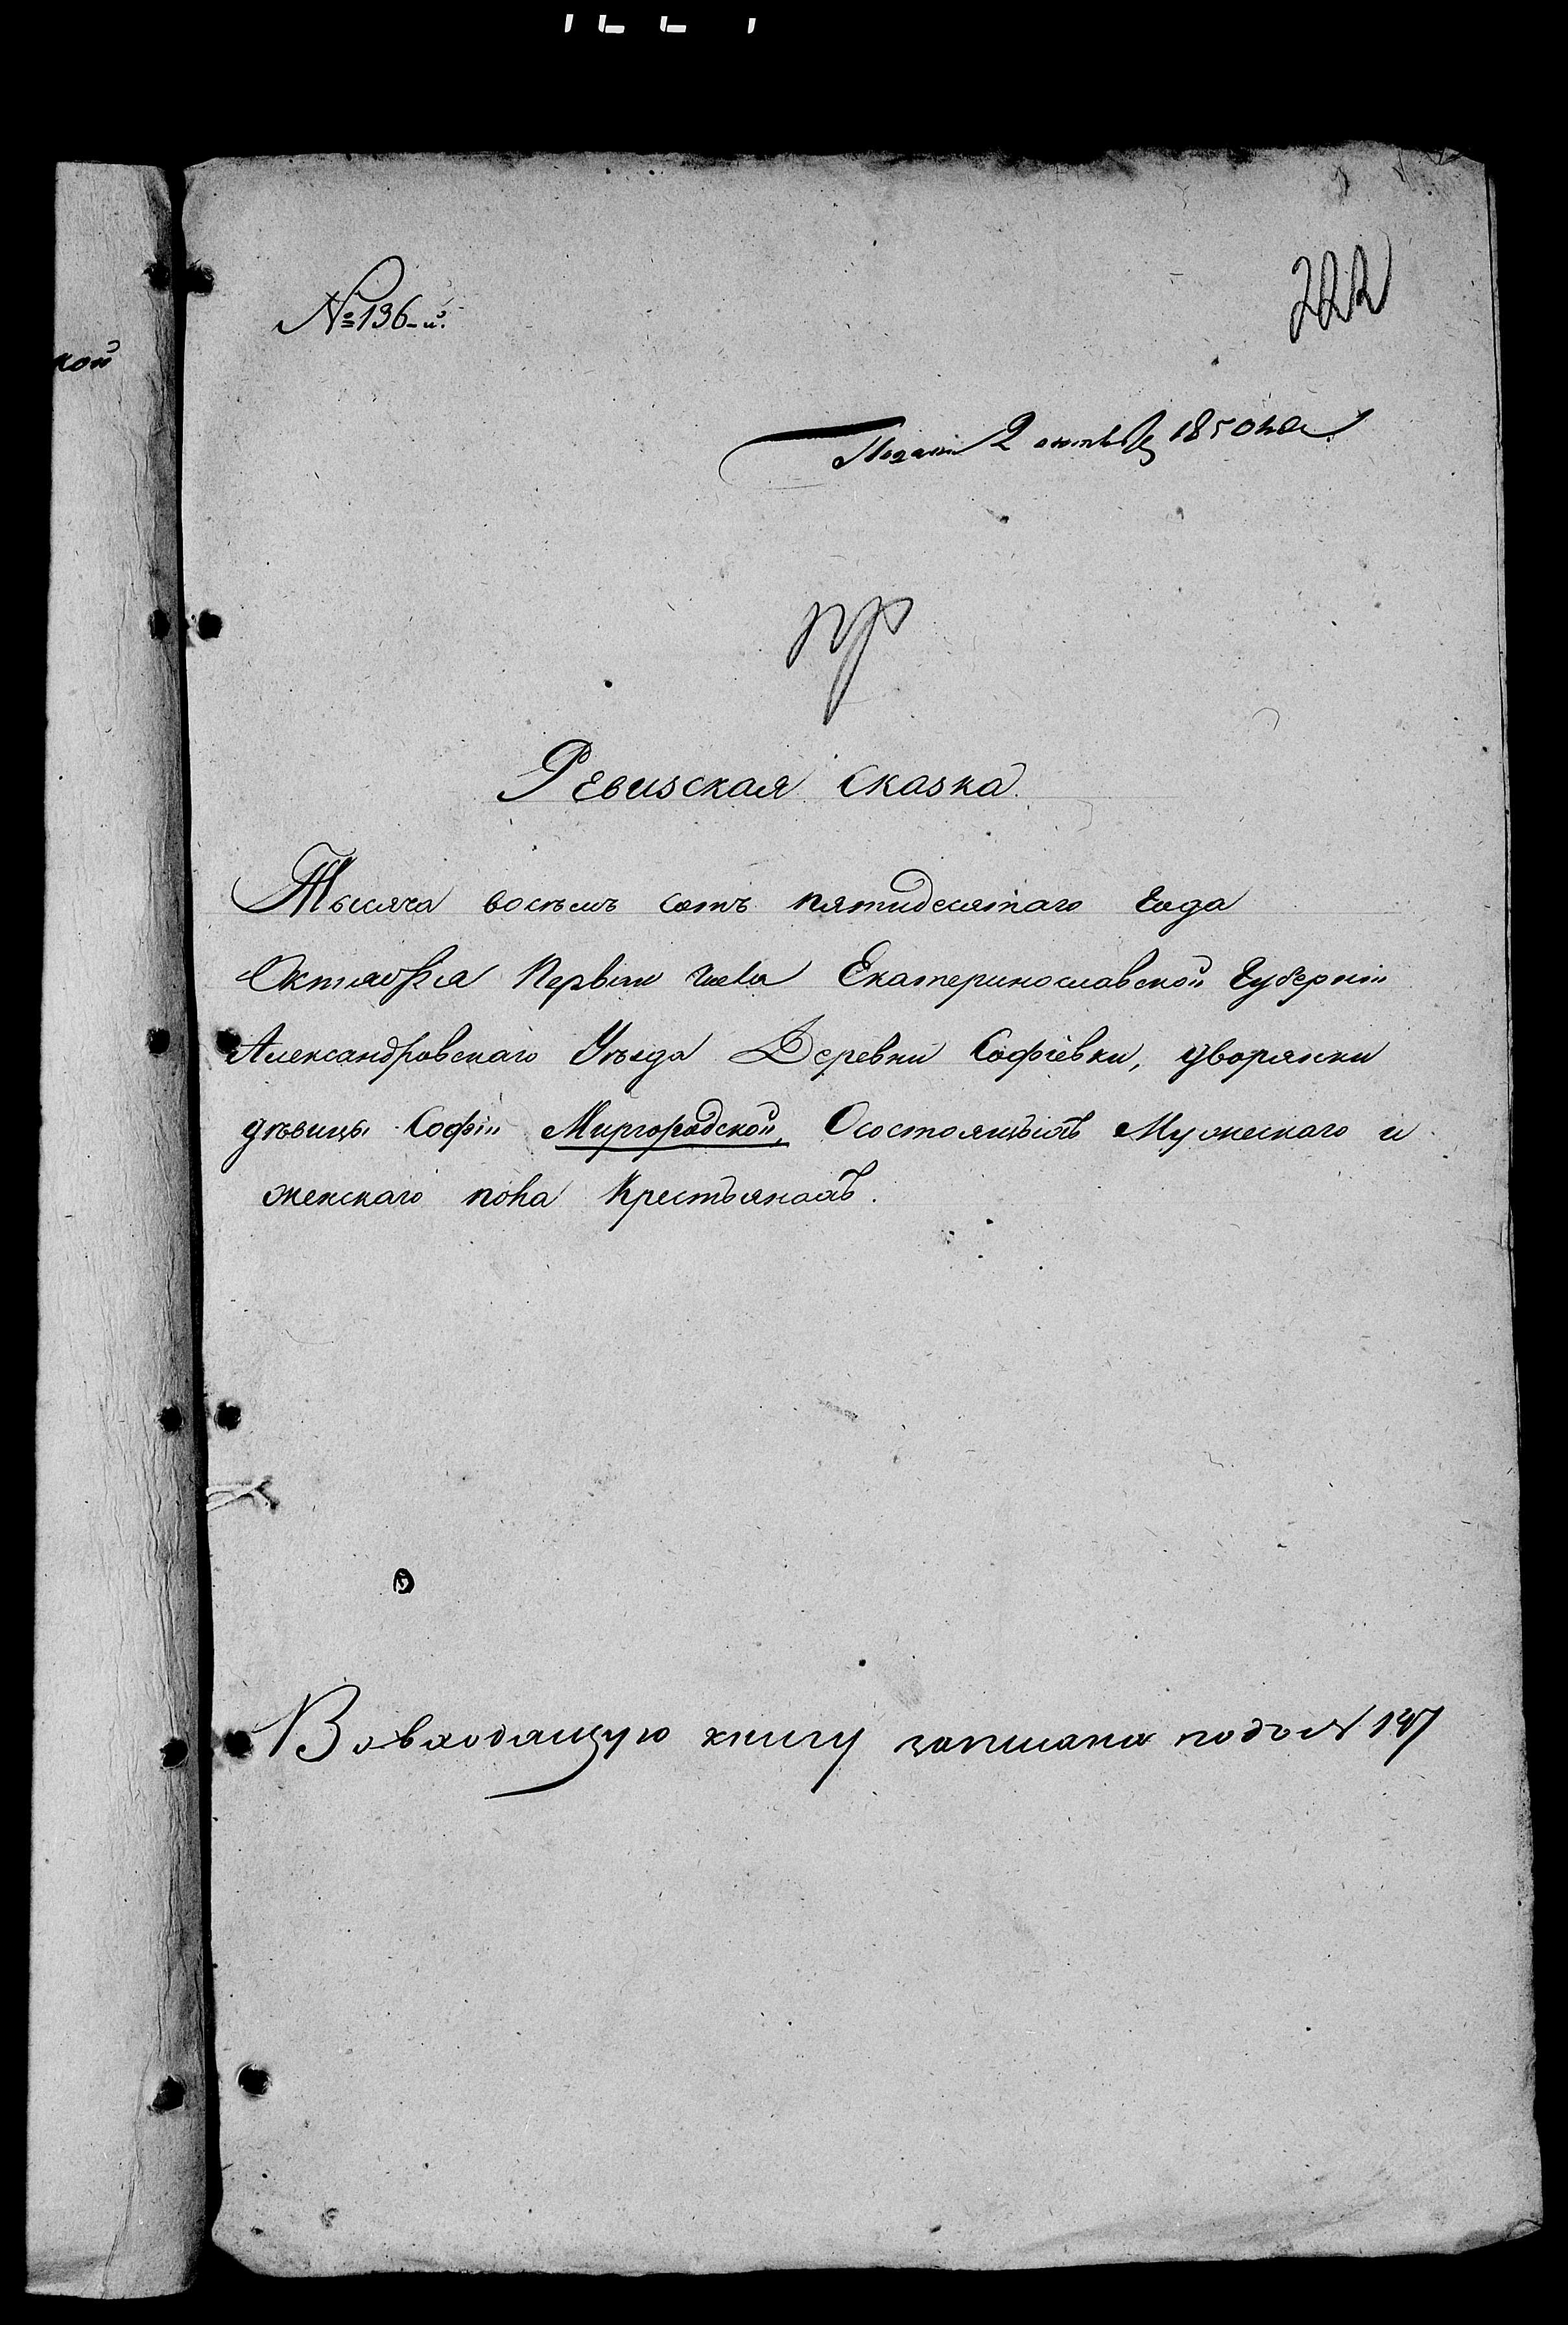 №136-й.
222
кой
Подана 2 октября 1850 года
пр
Ревизская Сказка.
Тысяча восемь сотъ пятидесятаго Года
Октября Первого числа Екатеринославской Губерніи
Александровскаго Уѣзда Деревни Софіевки, дворянки
дѣвицы Софіи Миргородской, О состоящихъ Мужескаго и
женскаго пола Крестьянахъ.
Во входящую книгу записана подъ № 147